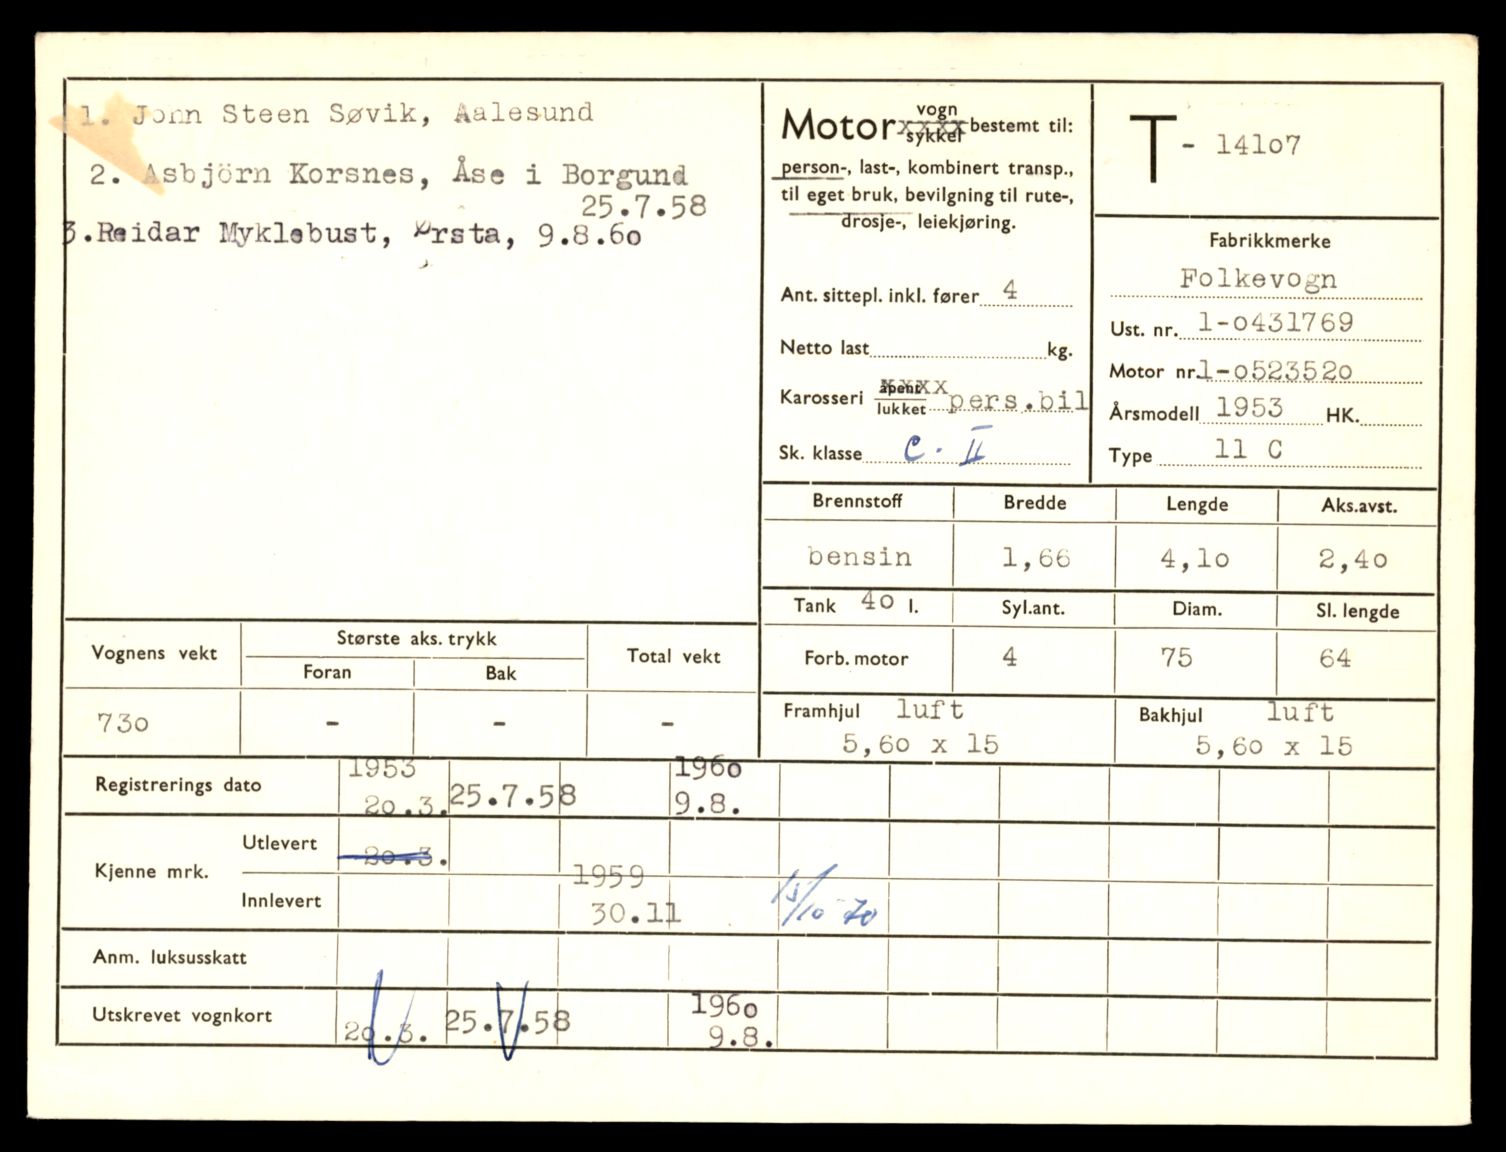 1. John Steen Søvik, Aalesund
2. Asbjörn Korsnes, Åse i Borgund
25.7.58
3.Reidar Myklebust, Ørsta, 9.8.6o
Motor vogn
sykkel bestemt til:
person-, last-, kombinert transp.,
til eget bruk, bevilgning til rute-,
drosje-, leiekjøring.
Ant. sittepl. inkl. fører 4
Netto last kg.
Karosseri åpent xxxx
lukket pers.bil
Sk. klasse C. II
T - 141o7
Fabrikkmerke
Folkevogn
Ust. nr. 1-o431769
Motor nr. 1-o52352o
Årsmodell 1953 HK.
Type 11 C
Brennstoff Bredde Lengde Aks.avst.
bensin 1,66 4,1o 2,4o
Tank 4o l. Syl.ant. Diam. Sl. lengde
Forb. motor 4 75 64
Framhjul luft Bakhjul luft
5,6o x 15 5,6o x 15
Vognens vekt Største aks. trykk Total vekt
Foran Bak
73o - - -
Registrerings dato 1953 196o
2o.3. 25.7.58 9.8.
Kjenne mrk. Utlevert 2o.3.
1959
Innlevert 30.11 15/10 70
Anm. luksusskatt
Utskrevet vognkort 196o
2o.3. 25.7.58 9.8.